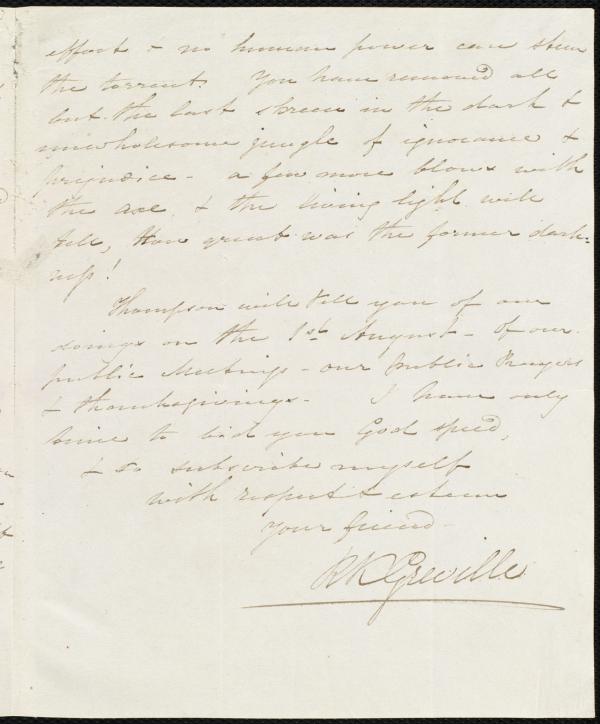 effort & no human power can stem
the torrent. You have removed all
but the last screen in the dark &
unwholesome jungle of ignorance &
prejudice - a few more blows with
the axe, & the living light will
tell, How great was the former dark=
ness!
Thompson will tell you of our
doings on the 1st August - of our
public Meetings - our public Prayers
& thanksgivings - I have only
time to bid you God speed,
& to subscribe myself
with respect & esteem
your friend -
R K Greville